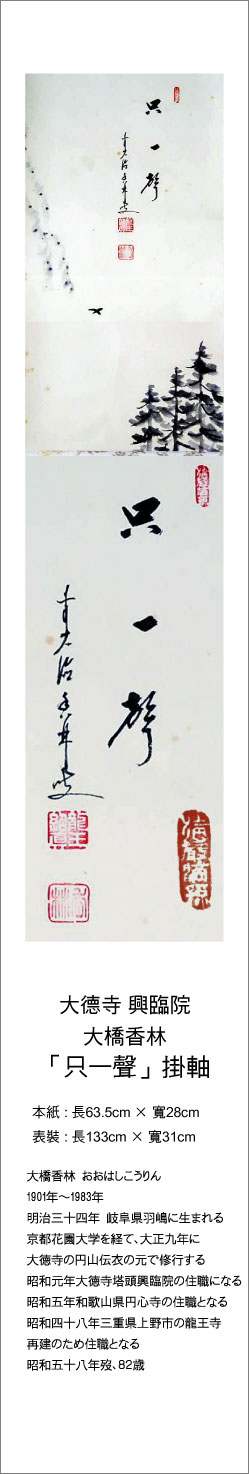 只一聲
只一聲
大德寺 興臨院
大橋香林
「只一聲」掛軸
本紙：長63.5cm × 寬28cm
表裝：長133cm × 寬31cm
大橋香林 おおはしこうりん
1901年～1983年
明治三十四年 岐阜県羽嶋に生まれる
京都花園大学を経て、大正九年に
大徳寺の円山伝衣の元で修行する
昭和元年大徳寺塔頭興臨院の住職になる
昭和五年和歌山県円心寺の住職となる
昭和四十八年三重県上野市の龍王寺
再建のため住職となる
昭和五十八年歿、82歳